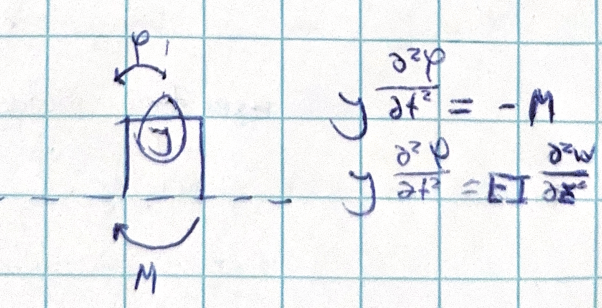 φ
J
J ∂²φ/∂t² = -M
J ∂²φ/∂t² = EI ∂²w/∂z²
M